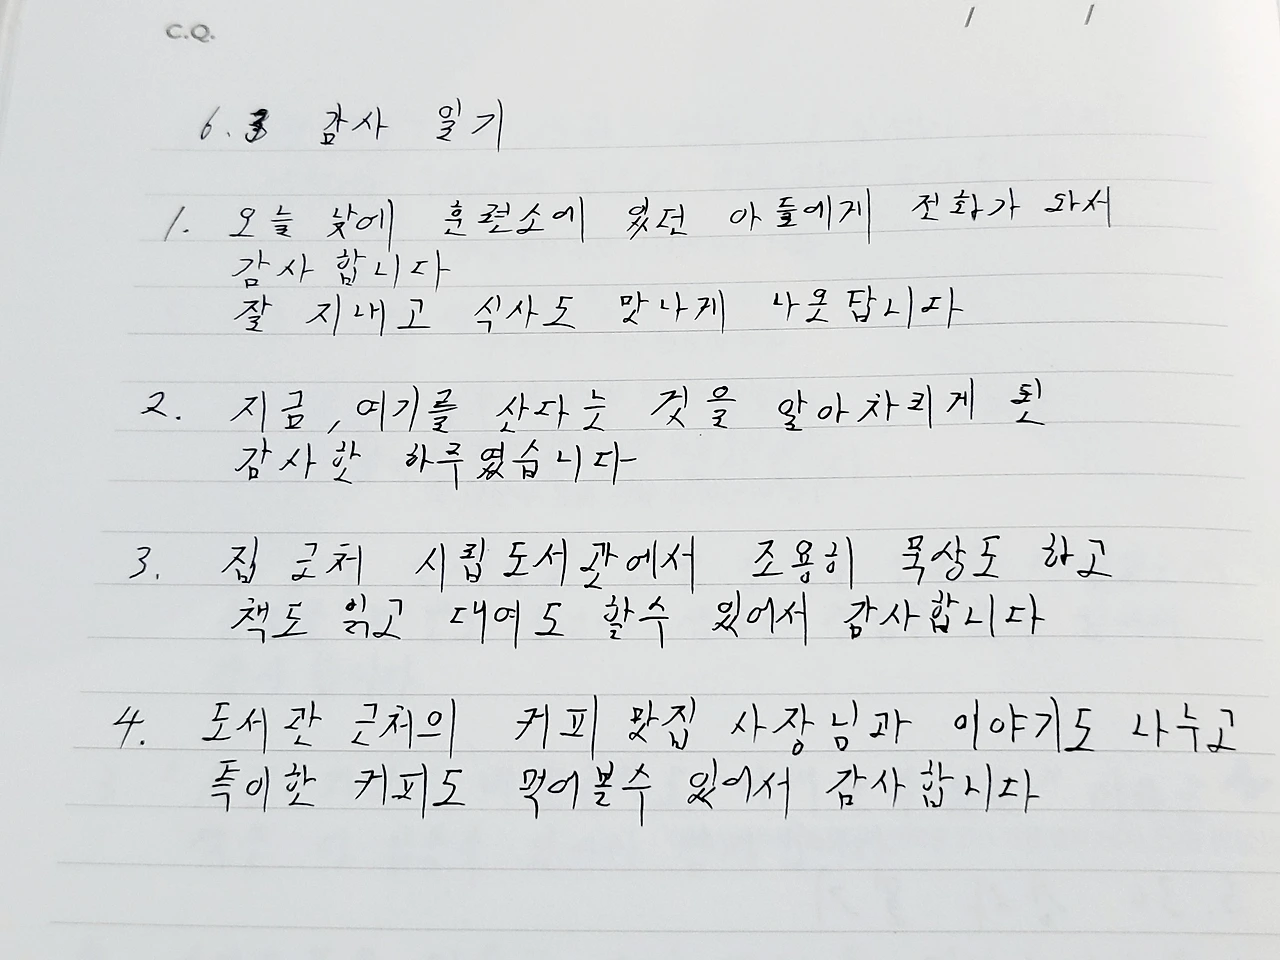 C.Q.
/ /
6. 3 감사 일기
1. 오늘 낮에 훈련소에 있던 아들에게 전화가 와서
감사합니다
잘 지내고 식사도 맛나게 나온답니다
2. 지금, 여기를 산다는 것을 알아차리게 된
감사한 하루였습니다
3. 집 근처 시립도서관에서 조용히 묵상도 하고
책도 읽고 대여도 할수 있어서 감사합니다
4. 도서관 근처의 커피 맛집 사장님과 이야기도 나누고
특이한 커피도 먹어볼수 있어서 감사합니다